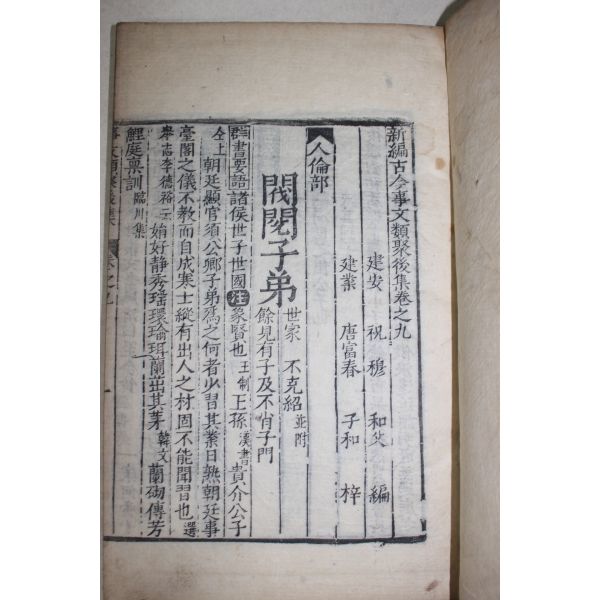 新編古今事文類聚後集卷之九
建安 祝 穆 和父 編
建業 唐富春 子和 梓
人倫部
閥閱子弟 世家 不克紹並附
餘見有子及不肖子門
群書要語諸侯世子世國注象賢也王制王孫漢書貴介公子
仝上朝廷顯官須公卿子弟爲之何者少習其業目熟朝廷事
臺閣之儀不教而自成寒士縱有出人之材固不能閑習也選
舉志李德裕云姢好靜秀瑶環瑜珥蘭茁其茅韓文蘭砌傳芳
鯉庭稟訓臨川集